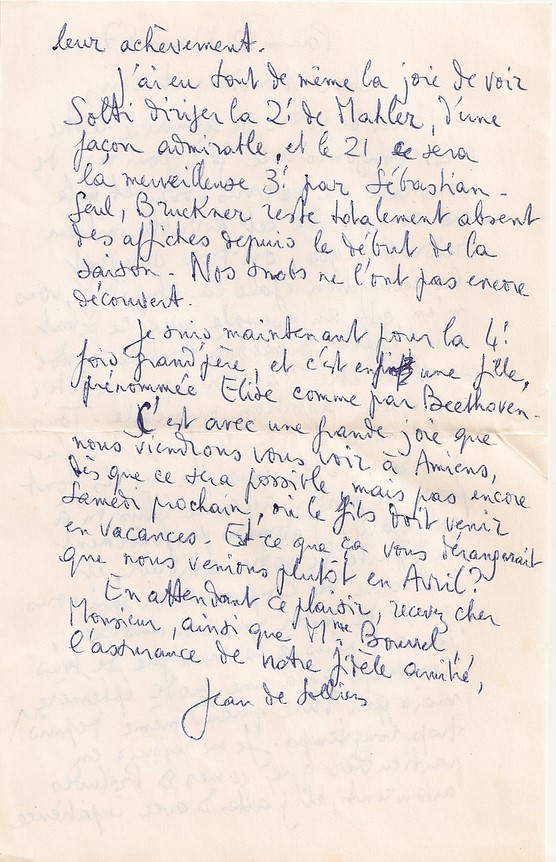 leur achèvement.
J'ai eu tout de même la joie de voir
Solti diriger la 2e de Mahler, d'une
façon admirable, et le 21, ce sera
la merveilleuse 3e par Sébastian -
Seul, Bruckner reste totalement absent
des affiches depuis le début de la
saison - Nos snobs ne l'ont pas encore
découvert.
Je suis maintenant pour la 4e
fois grand'père, et c'est enfin une fille,
prénommée Elise comme par Beethoven -
C'est avec une grande joie que
nous viendrons vous voir à Amiens,
dès que ce sera possible mais pas encore
Samedi prochain, où le fils doit venir
en vacances - Est-ce que ça vous dérangerait
que nous venions plutôt en Avril?
En attendant ce plaisir, recevez cher
Monsieur, ainsi que Mme Bourrel,
l'assurance de notre fidèle amitié,
Jean de Solliès